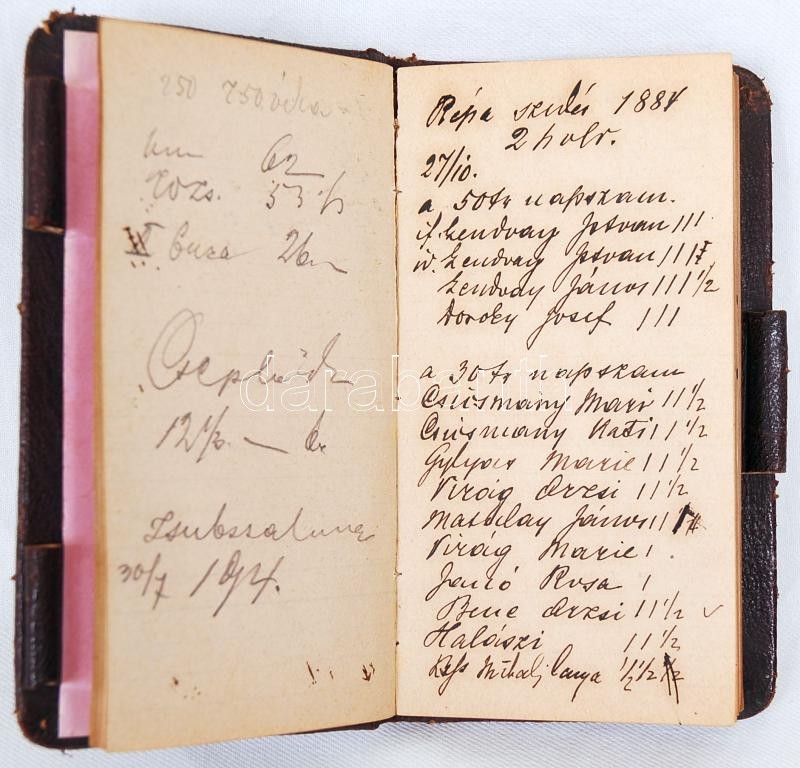 250 750 véka
62
Rozs. 53 1/2
Buza 26
12 1/2 —
Zsubszalma
30/7 194.
Répa szedés 1884
2 holr.
27/10.
a 50 tr napszam.
if. Lendvay Istvan III
id. Lendvay Istvan III
Lendvay János III 1/2
Doroky Josef III
a 30 tr napszam
Csösmány Mari II 1/2
Csösmany Kati II 1/2
Gulyas Marie II 1/2
Virág Orzsi II 1/2
János II
Virág Marie I
Janó Rosa I
Bene Orzsi II 1/2
Halászi II 1/2
Kiss Mihalj lanya 1/2 1/2
darabanth